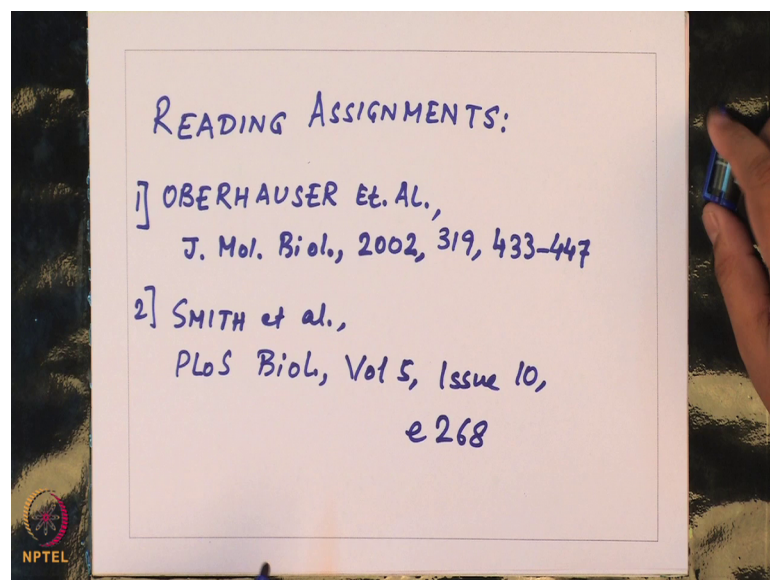 READING ASSIGNMENTS:
1] OBERHAUSER Et. AL.,
J. Mol. Biol., 2002, 319, 433-447
2] SMITH et al.,
PLoS Biol., Vol 5, Issue 10,
e268
NPTEL